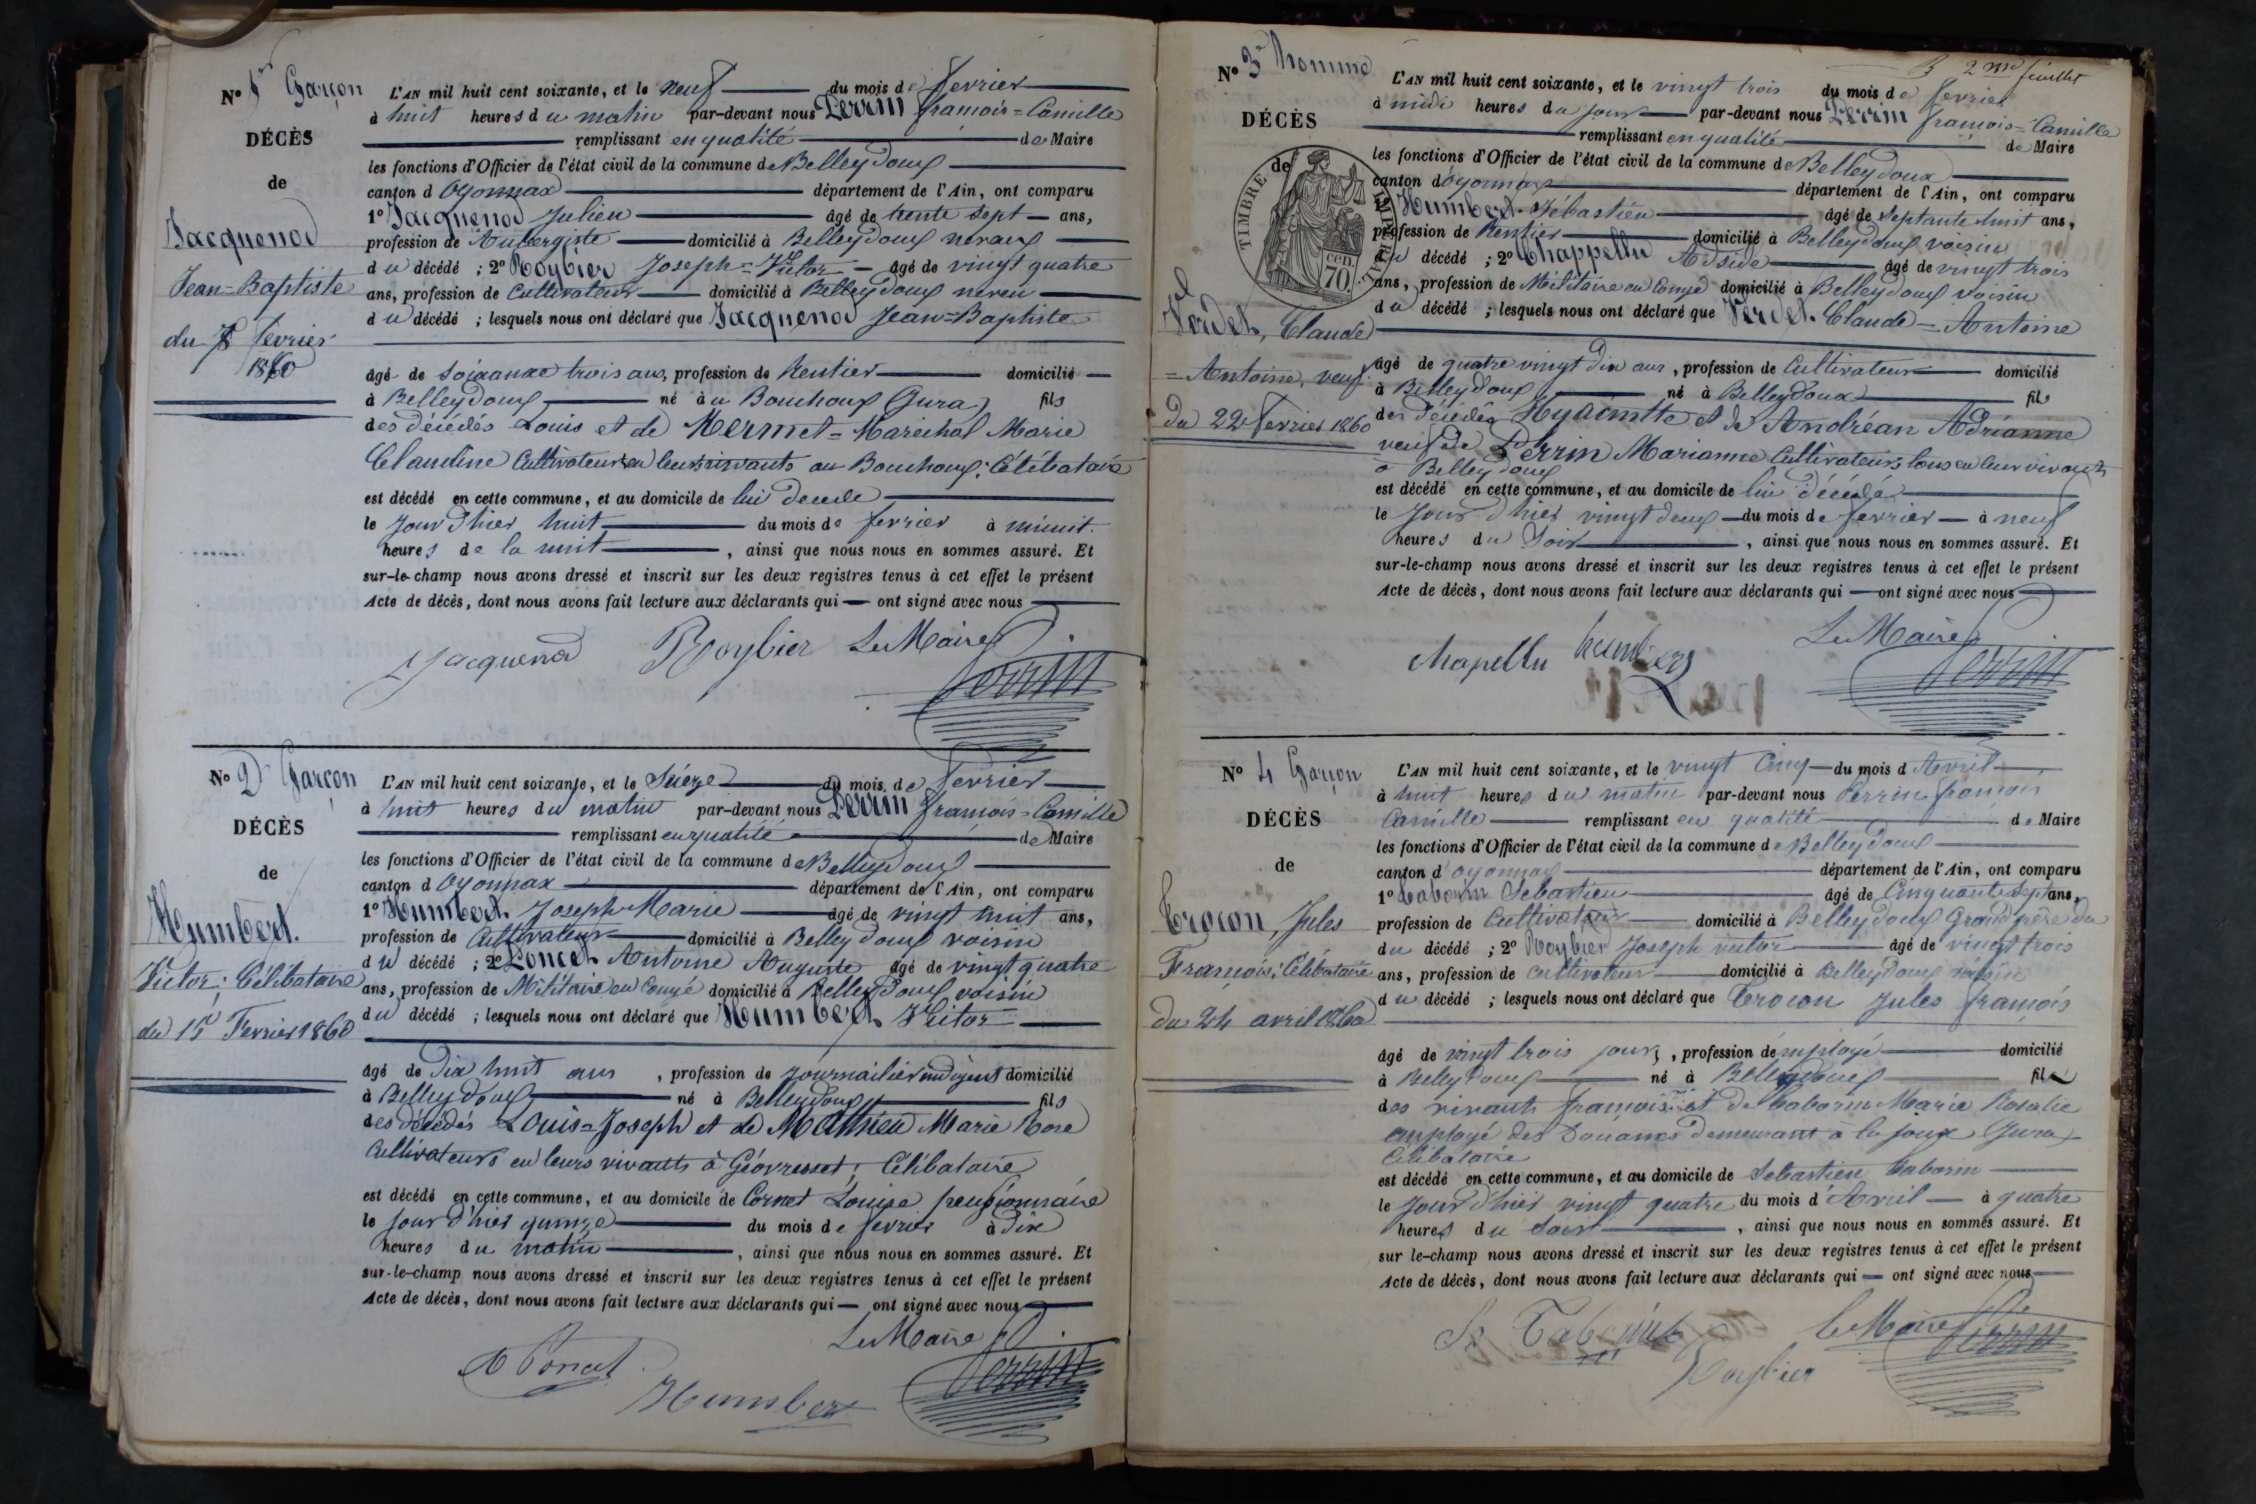 No 1er Garçon
DÉCÈS
de
Jacquenod
Jean=Baptiste
du 8 fevrier
1860
L'AN mil huit cent soixante, et le neuf du mois de fevrier
à huit heures du matin par-devant nous Perrin françois=Camille
remplissant en qualité de Maire
les fonctions d'Officier de l'état civil de la commune de Belleydoux
canton d Oyonnax département de l'Ain, ont comparu
1o Jacquenod Julien âgé de trente sept ans,
profession de Aubergiste domicilié à Belleydoux neveux
du décédé ; 2o Roybier Joseph=Victor âgé de vingt quatre
ans, profession de Cultivateur domicilié à Belleydoux neveu
du décédé ; lesquels nous ont déclaré que Jacquenod Jean=Baptiste
âgé de soixante trois ans, profession de Rentier domicilié
à Belleydoux né au Bouchoux (Jura) fils
des décédés Louis et de Mermet=Marechal Marie
Claudine Cultivateurs en leurs vivants au Bouchoux; Célibataire
est décédé en cette commune, et au domicile de lui decede
le jour d'hier huit du mois de fevrier à minuit
heures de la nuit, ainsi que nous nous en sommes assuré. Et
sur-le-champ nous avons dressé et inscrit sur les deux registres tenus à cet effet le présent
Acte de décès, dont nous avons fait lecture aux déclarants qui ont signé avec nous
Jacquenod Roybier Le Maire
Perrin
No 2 Garçon
DÉCÈS
de
Humbert.
Victor; Célibataire
du 15 Fevrier 1860
L'AN mil huit cent soixante, et le Seize du mois de fevrier
à huit heures du matin par-devant nous Perrin françois=Camille
remplissant en qualité de Maire
les fonctions d'Officier de l'état civil de la commune de Belleydoux
canton d Oyonnax département de l'Ain, ont comparu
1o Humbert. Joseph Marie âgé de vingt huit ans,
profession de Cultivateur domicilié à Belleydoux voisin
du décédé ; 2o Poncet Antoine Auguste âgé de vingt quatre
ans, profession de Militaire en Congé domicilié à Belleydoux voisin
du décédé ; lesquels nous ont déclaré que Humbert Victor
âgé de Dix huit ans, profession de journailier indigent domicilié
à Belleydoux né à Belleydoux fils
des décédés Louis=Joseph et de Mathieu Marie Rose
Cultivateurs en leurs vivants à Géovresset; Célibataire
est décédé en cette commune, et au domicile de Cornet Louise pensionnaire
le jour d'hier quinze du mois de fevrier à dix
heures du matin, ainsi que nous nous en sommes assuré. Et
sur-le-champ nous avons dressé et inscrit sur les deux registres tenus à cet effet le présent
Acte de décès, dont nous avons fait lecture aux déclarants qui ont signé avec nous
Le Maire
A Poncet
Humbert Perrin
3 2me feuillet
No 3 homme
DÉCÈS
de
TIMBRE IMPÉRIAL
CEN. 70.
Verdet, Claude
=Antoine, veuf
du 22 Fevrier 1860
L'AN mil huit cent soixante, et le vingt trois du mois de fevrier
à midi heures du jour par-devant nous Perrin françois=Camille
remplissant en qualité de Maire
les fonctions d'Officier de l'état civil de la commune de Belleydoux
canton d'oyonnax département de l'Ain, ont comparu
Humbert Sébastien âgé de septante huit ans,
profession de Rentier domicilié à Belleydoux voisin
du décédé ; 2o Chappellu âgé de vingt trois
ans, profession de Militaire en Congé domicilié à Belleydoux voisin
du décédé ; lesquels nous ont déclaré que Verdet. Claude=Antoine
âgé de quatre vingt dix ans, profession de Cultivateur domicilié
à Belleydoux né à Belleydoux fils
des décédés Hyacinthe et de Andréan Adrianne
veuf de Perrin Marianne Cultivateurs tous en leur vivants
à Belleydoux
est décédé en cette commune, et au domicile de lui décédé
le jour d'hier vingt deux du mois de fevrier à neuf
heures du Soir, ainsi que nous nous en sommes assuré. Et
sur-le-champ nous avons dressé et inscrit sur les deux registres tenus à cet effet le présent
Acte de décès, dont nous avons fait lecture aux déclarants qui ont signé avec nous
Chapellu humbert Le Maire
Perrin
No 4 Garçon
DÉCÈS
de
Crocon, Jules
François; Célibataire
du 24 avril 1860
L'AN mil huit cent soixante, et le vingt Cinq du mois d Avril
à huit heures du matin par-devant nous Perrin françois
Camille remplissant en qualité de Maire
les fonctions d'Officier de l'état civil de la commune de Belleydoux
canton d'oyonnax département de l'Ain, ont comparu
1o Taborin Sebastien âgé de Cinquante sept ans,
profession de Cultivateur domicilié à Belleydoux Grand père du
du décédé ; 2o Roybier Joseph victor âgé de vingt trois
ans, profession de Cultivateur domicilié à Belleydoux voisin
du décédé ; lesquels nous ont déclaré que Crocon Jules françois
âgé de vingt trois jours, profession d'employé domicilié
à Belleydoux né à Belleydoux fils
des vivants françois et de Taborin Marie Rosalie
employé des Douanes demeurant à la joux (Jura)
Célibataire
est décédé en cette commune, et au domicile de Sebastien Taborin
le jour d'hier vingt quatre du mois d'Avril à quatre
heures du Soir, ainsi que nous nous en sommes assuré. Et
sur le-champ nous avons dressé et inscrit sur les deux registres tenus à cet effet le présent
Acte de décès, dont nous avons fait lecture aux déclarants qui ont signé avec nous
Le Maire Perrin
Roybier